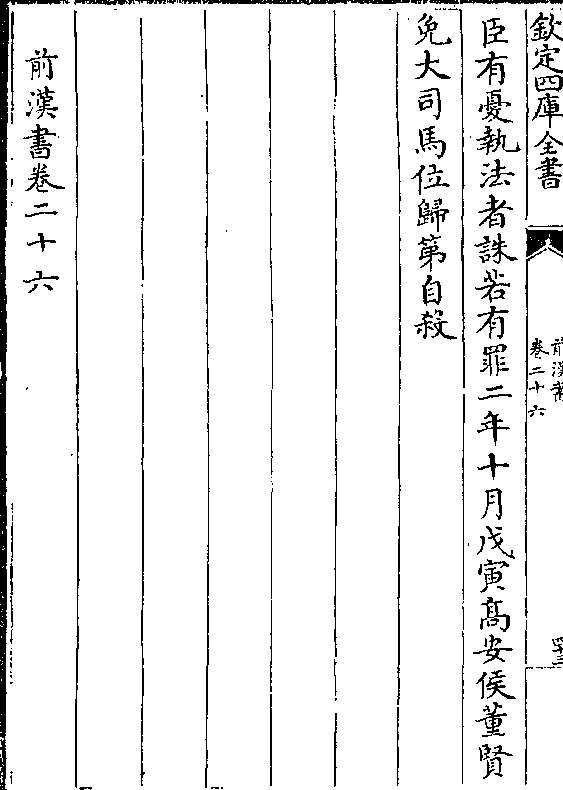 欽定四庫全書
前漢書
卷二十六
四三
臣有憂執法者誅若有罪二年十月戊寅髙安侯董賢
免大司馬位歸第自殺
前漢書卷二十六